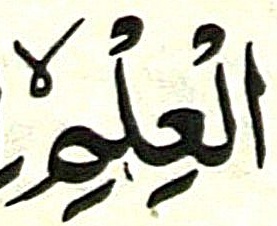 الْعِلْمِۙ